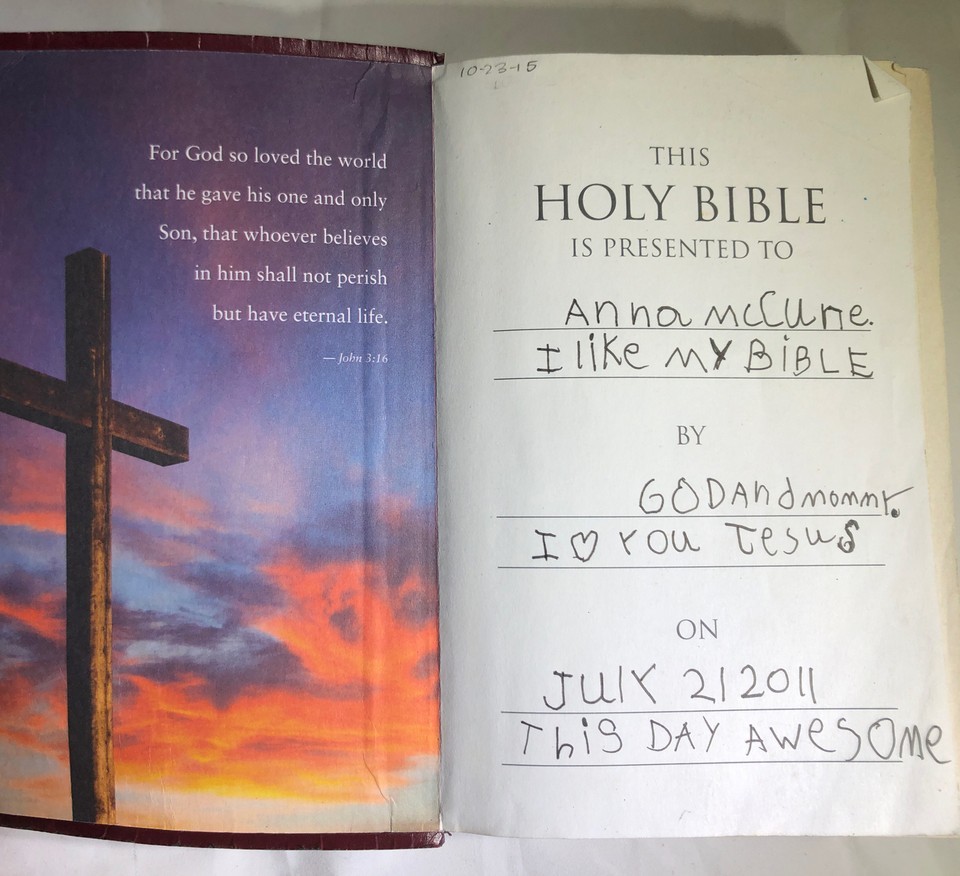 For God so loved the world
that he gave his one and only
Son, that whoever believes
in him shall not perish
but have eternal life.
— John 3:16
10-23-15
THIS
HOLY BIBLE
IS PRESENTED TO
Anna mcCune.
I like my BiBLE
BY
GODAndmommy.
I ♡ You Jesus
ON
July 21 2011
This DAY AwesOme